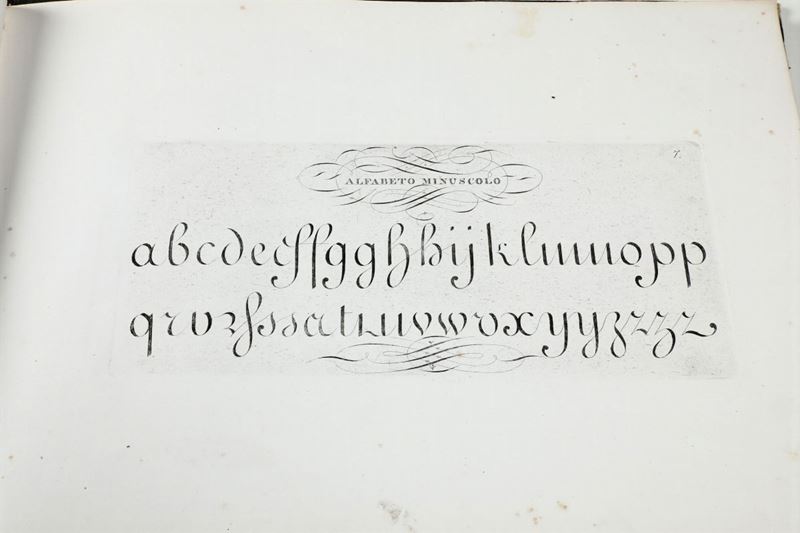 7.
ALFABETO MINUSCOLO
abcdeefffgghhijklmnopp
qrvzsssatuuvwvxyyzzzz